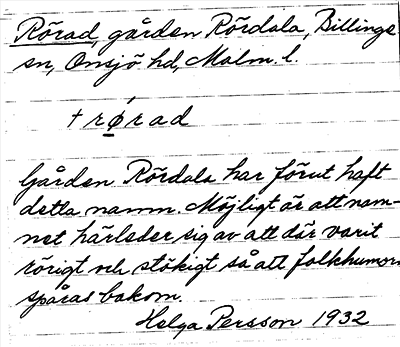 Rörad, gården Rördala, Billinge
sn, Onsjö hd, Malm. l.
+ rǿrad
Gården Rördala har förut haft
detta namn. Möjligt är att nam-
net härleder sig av att där varit
rörigt och stökigt så att folkhumorn
spåras bakom.
Helga Persson 1932